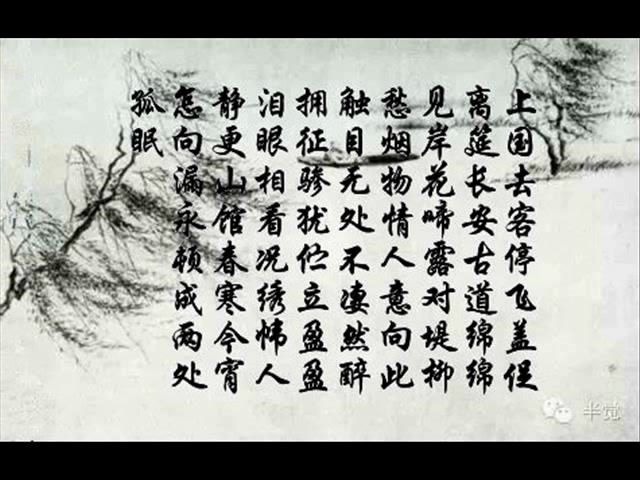 上国去客停飞盖促
离筵长安古道绵绵
见岸花啼露对堤柳
愁烟物情人意向此
触目无处不凄然醉
拥征骖犹伫立盈盈
泪眼相看况绣帏人
静更山馆春寒今宵
怎向漏永顿成两处
孤眠
半觉